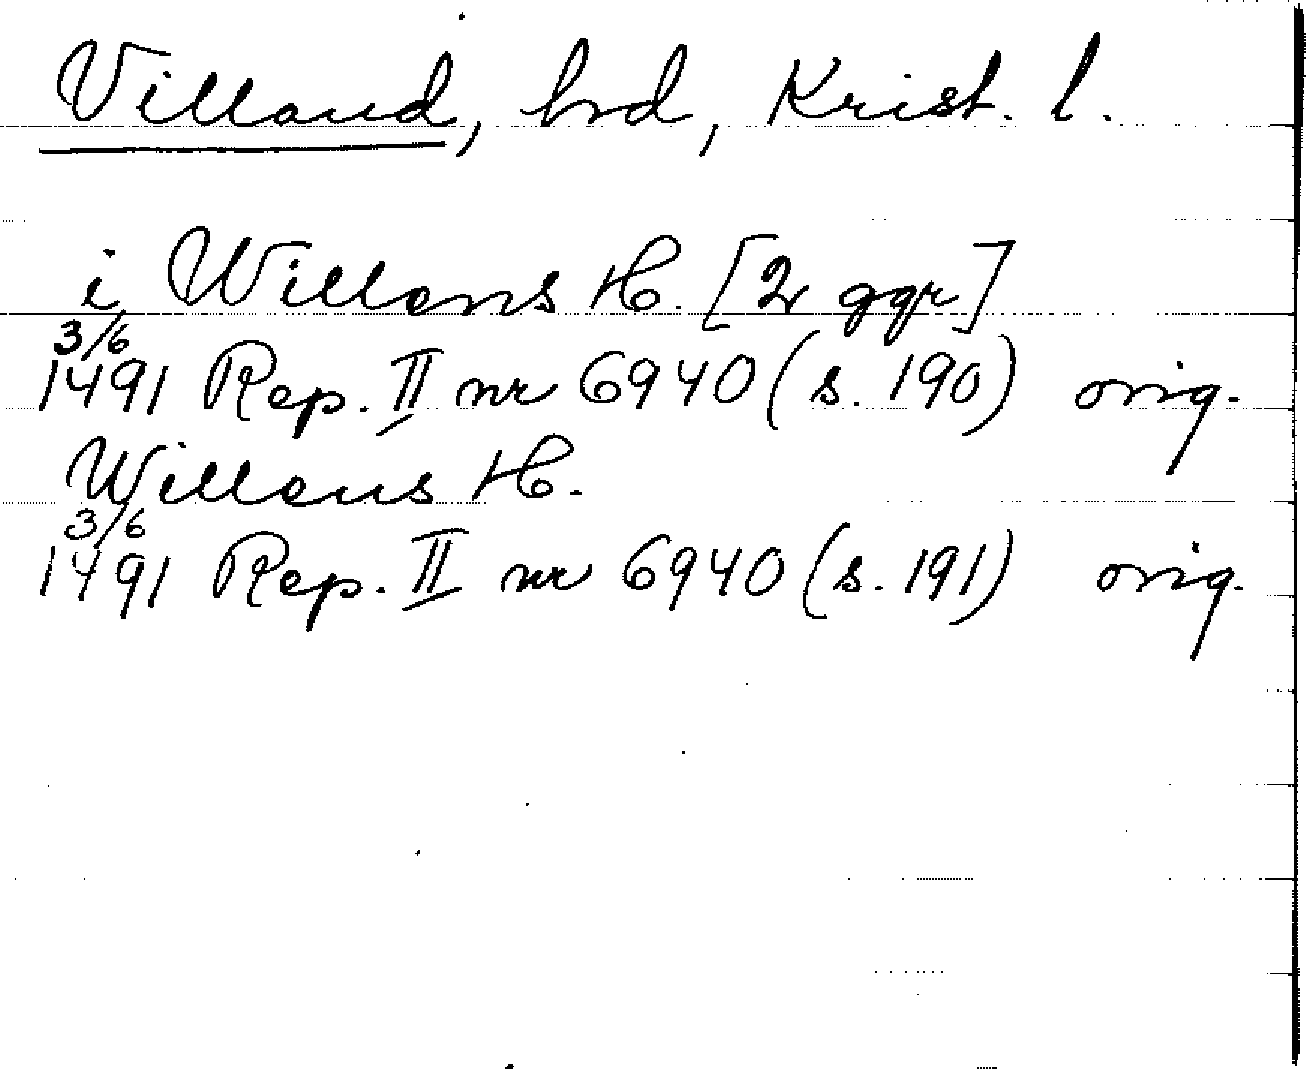 Villand, hd, Krist. l.
i Willans H. [2 ggr]
3/6
1491 Rep. II nr 6940 (s. 190) orig.
Willans H.
3/6
1491 Rep. II nr 6940 (s. 191) orig.